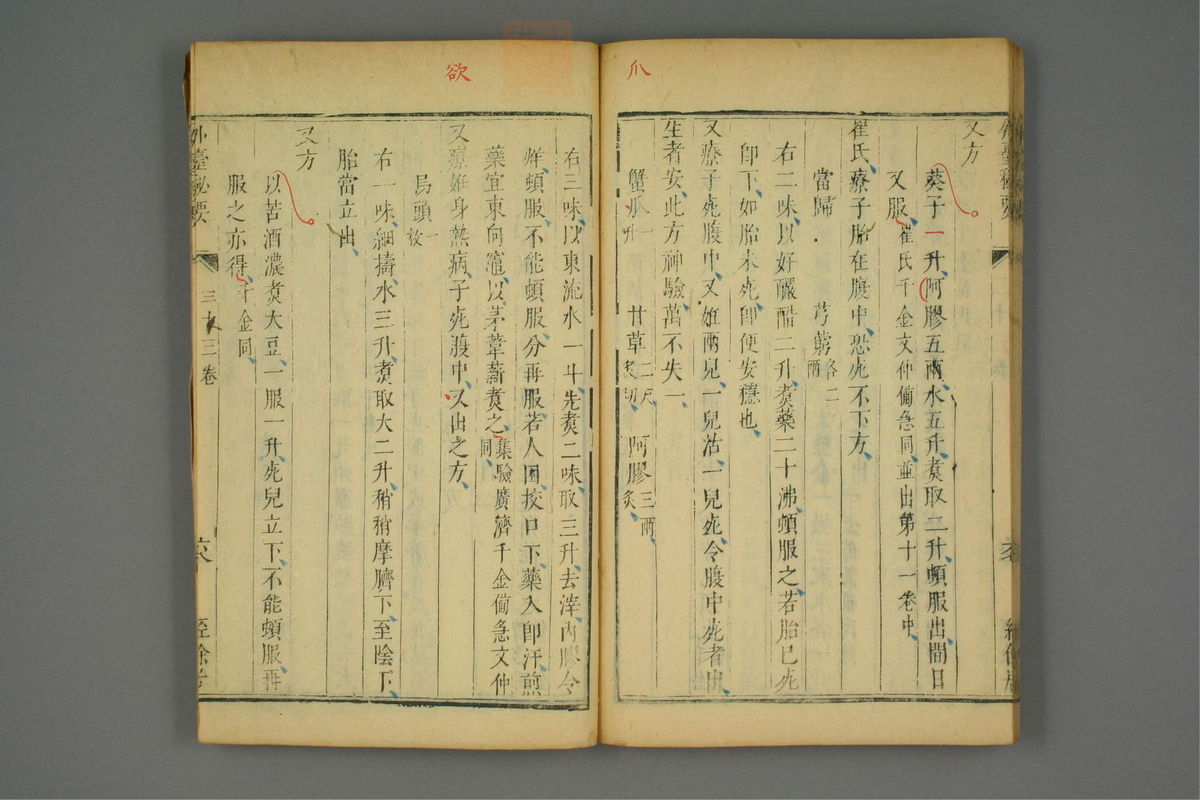 爪
又方
葵子一升阿膠五兩水五升煑取二升頓服出間日
又服崔氏千金文仲備急同並出第十一卷中
崔氏療子胎在腹中恐死不下方
當歸 芎藭各二兩
右二味以好釅醋二升煑藥二十沸頓服之若胎已死
卽下如胎未死卽便安穩也
又療子死腹中又妊兩兒一兒活一兒死令腹中死者出
生者安此方神驗萬不失一
蟹爪一升 甘草二尺炙切 阿膠三兩炙
欲
右三味以東流水一斗先煑二味取三升去滓內膠令
烊頓服不能頓服分再服若人困挍口下藥入卽汗煎
藥宜東向竈以茅葦薪煑之集驗廣濟千金備急文仲同
又療妊身熱病子死腹中又出之方
烏頭一枚
右一味細擣水三升煑取大二升稍稍摩臍下至陰下
胎當立出
又方
以苦酒濃煑大豆一服一升死兒立下不能頓服再
服之亦得千金同
外臺祕要
三十三卷
六八
經餘居